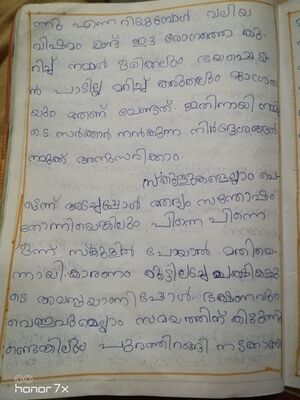 ന്നു എന്നറിയുമ്പോൾ വലിയ
വിഷമം ഉണ്ട്. ഈ രോഗത്തെ കു
റിച്ച് നമ്മൾ ഒരിക്കലും ഭയപ്പെടാ
ൻ പാടില്ല മറിച്ച് അതലും ജാഗ്രത
യും ആണ് വേണ്ടത്. ഇതിനായി നമ്മു
ടെ സർക്കാർ നൽകുന്ന നിർദ്ദേശങ്ങൾ
നമുക്ക് അനുസരിക്കാം.
സ്കൂളുകളെല്ലാം പെ
ട്ടെന്ന് അടച്ചപ്പോൾ ആദ്യം സന്തോഷം
തോന്നിയെങ്കിലും പിന്നെ പിന്നെ
ഒന്ന് സ്കൂളിൽ പോയാൽ മതിയെ
ന്നായി. കാരണം കൂട്ടിലടച്ച പക്ഷികളു
ടെ അവസ്ഥയാണിപ്പോൾ. ഭക്ഷണവും
വെള്ളവുമെല്ലാം സമയത്തിന് കിട്ടുന്നു
ണ്ടെങ്കിലും പുറത്തിറങ്ങി നടക്കാൻ
honor 7x